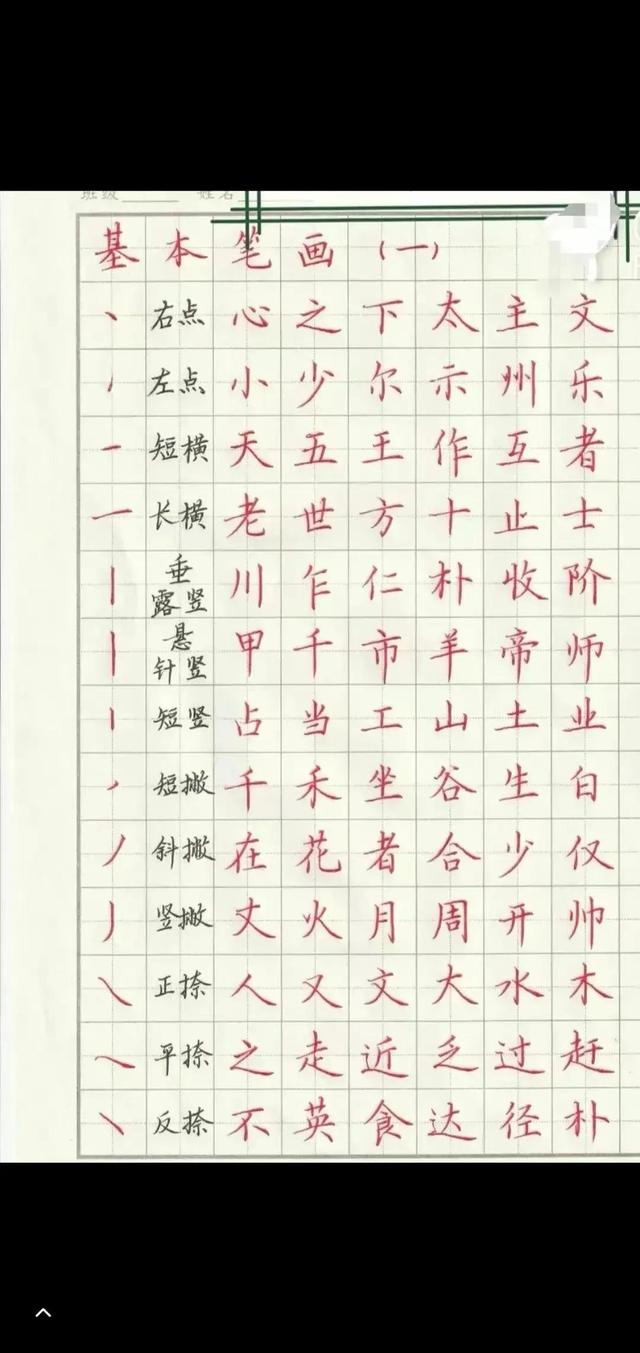 班级 姓名
基本笔画（一）
丶 右点 心 之 下 太 主 文
丿 左点 小 少 尔 示 州 乐
一 短横 天 五 王 作 互 者
一 长横 老 世 方 十 止 士
丨 垂露竖 川 乍 仁 朴 收 阶
丨 悬针竖 甲 千 市 羊 帝 师
丨 短竖 占 当 工 山 土 业
丿 短撇 千 禾 坐 谷 生 白
丿 斜撇 在 花 者 合 少 仅
丿 竖撇 丈 火 月 周 开 帅
㇏ 正捺 人 又 文 大 水 木
㇏ 平捺 之 走 近 乏 过 赶
㇏ 反捺 不 英 食 达 径 朴